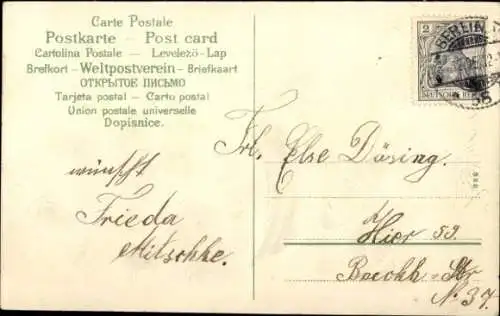 Carte Postale
Postkarte – Post card
Cartolina Postale – Levelező-Lap
Brefkort – Weltpostverein – Briefkaart
ОТКРЫТОЕ ПИСЬМО
Tarjeta postal – Carto postal
Union postale universelle
Dopisnice.
wünscht
Frieda
Mitschke.
Frl. Else Düsing.
Hier 59.
Boeckh-Str
N. 37.
2
DEUTSCHES REICH
BERLIN